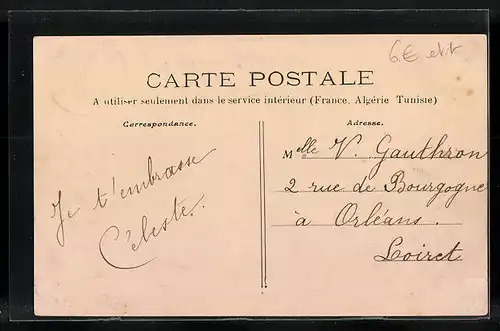 6€ etit
CARTE POSTALE
A utiliser seulement dans le service intérieur (France, Algérie Tunisie)
Correspondance.
Adresse.
Je t'embrasse
Céleste.
Melle V. Gauthron
2 rue de Bourgogne
à Orléans.
Loiret